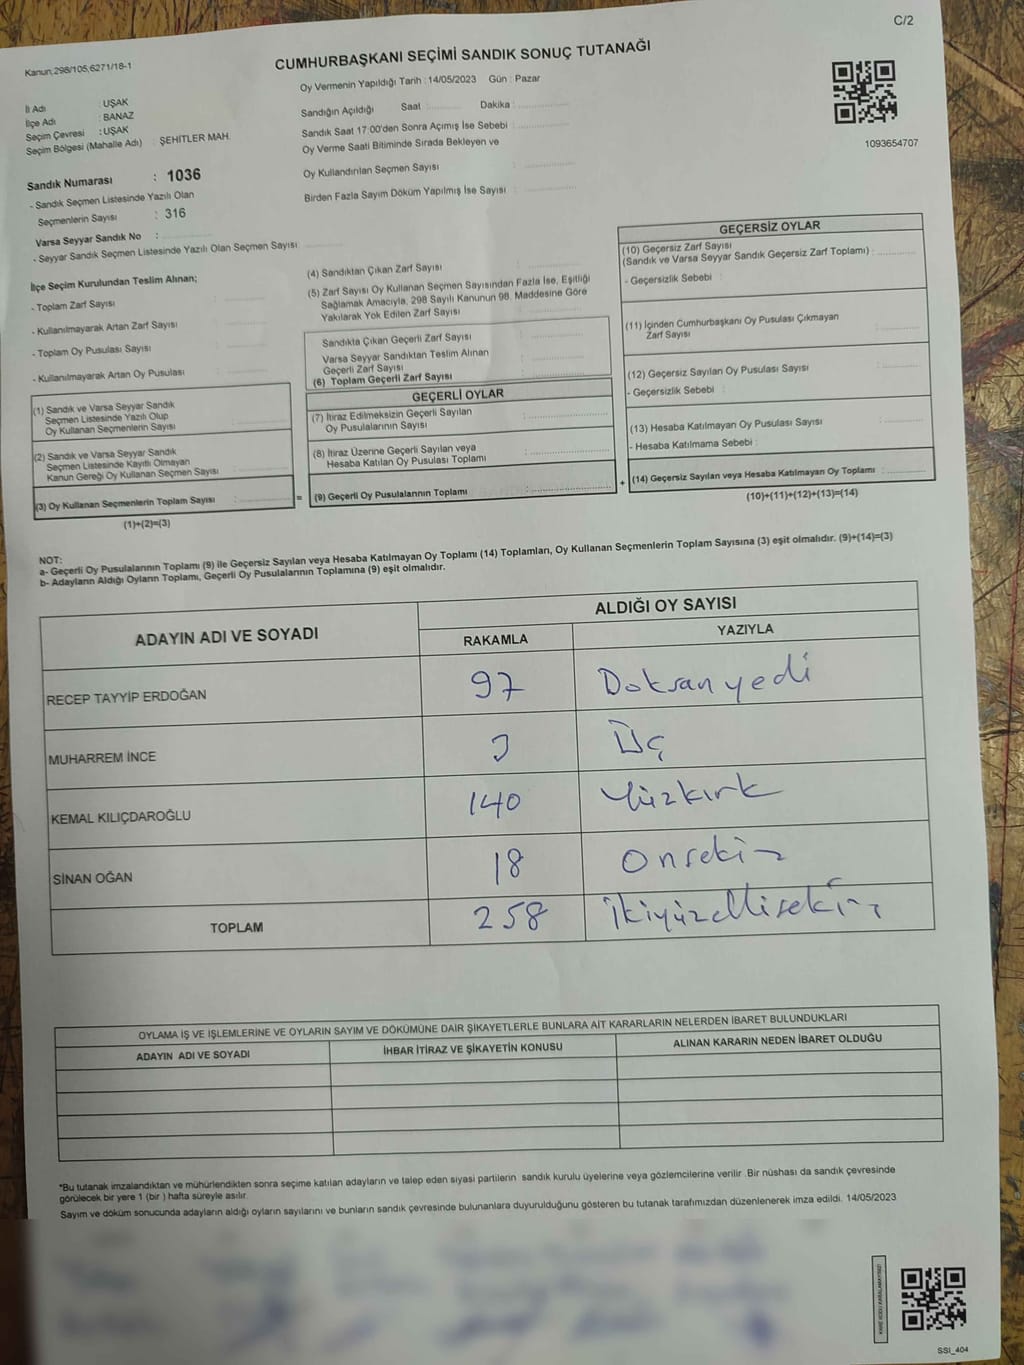 C/2
Kanun;298/105;6271/18-1
CUMHURBAŞKANI SEÇİMİ SANDIK SONUÇ TUTANAĞI
Oy Vermenin Yapıldığı Tarih : 14/05/2023 Gün : Pazar
İl Adı : UŞAK
İlçe Adı : BANAZ
Seçim Çevresi : UŞAK
Seçim Bölgesi (Mahalle Adı) : ŞEHİTLER MAH.
Sandık Numarası : 1036
- Sandık Seçmen Listesinde Yazılı Olan
Seçmenlerin Sayısı : 316
Varsa Seyyar Sandık No :
- Seyyar Sandık Seçmen Listesinde Yazılı Olan Seçmen Sayısı
Sandığın Açıldığı Saat : Dakika :
Sandık Saat 17:00'den Sonra Açımış İse Sebebi :
Oy Verme Saati Bitiminde Sırada Bekleyen ve
Oy Kullandırılan Seçmen Sayısı :
Birden Fazla Sayım Döküm Yapılmış İse Sayısı :
1093654707
İlçe Seçim Kurulundan Teslim Alınan;
- Toplam Zarf Sayısı :
- Kullanılmayarak Artan Zarf Sayısı :
- Toplam Oy Pusulası Sayısı :
- Kullanılmayarak Artan Oy Pusulası :
(1) Sandık ve Varsa Seyyar Sandık
Seçmen Listesinde Yazılı Olup
Oy Kullanan Seçmenlerin Sayısı :
(2) Sandık ve Varsa Seyyar Sandık
Seçmen Listesinde Kayıtlı Olmayan
Kanun Gereği Oy Kullanan Seçmen Sayısı :
(3) Oy Kullanan Seçmenlerin Toplam Sayısı :
(1)+(2)=(3)
(4) Sandıktan Çıkan Zarf Sayısı :
(5) Zarf Sayısı Oy Kullanan Seçmen Sayısından Fazla İse, Eşitliği
Sağlamak Amacıyla, 298 Sayılı Kanunun 98. Maddesine Göre
Yakılarak Yok Edilen Zarf Sayısı :
Sandıkta Çıkan Geçerli Zarf Sayısı :
Varsa Seyyar Sandıktan Teslim Alınan
Geçerli Zarf Sayısı :
(6) Toplam Geçerli Zarf Sayısı :
GEÇERLİ OYLAR
(7) İtiraz Edilmeksizin Geçerli Sayılan
Oy Pusulalarının Sayısı :
(8) İtiraz Üzerine Geçerli Sayılan veya
Hesaba Katılan Oy Pusulası Toplamı :
= (9) Geçerli Oy Pusulalarının Toplamı :
GEÇERSİZ OYLAR
(10) Geçersiz Zarf Sayısı
(Sandık ve Varsa Seyyar Sandık Geçersiz Zarf Toplamı) :
- Geçersizlik Sebebi :
(11) İçinden Cumhurbaşkanı Oy Pusulası Çıkmayan
Zarf Sayısı :
(12) Geçersiz Sayılan Oy Pusulası Sayısı :
- Geçersizlik Sebebi :
(13) Hesaba Katılmayan Oy Pusulası Sayısı :
- Hesaba Katılmama Sebebi :
+ (14) Geçersiz Sayılan veya Hesaba Katılmayan Oy Toplamı :
(10)+(11)+(12)+(13)=(14)
NOT:
a- Geçerli Oy Pusulalarının Toplamı (9) ile Geçersiz Sayılan veya Hesaba Katılmayan Oy Toplamı (14) Toplamları, Oy Kullanan Seçmenlerin Toplam Sayısına (3) eşit olmalıdır. (9)+(14)=(3)
b- Adayların Aldığı Oyların Toplamı, Geçerli Oy Pusulalarının Toplamına (9) eşit olmalıdır.
ADAYIN ADI VE SOYADI ALDIĞI OY SAYISI
RAKAMLA YAZIYLA
RECEP TAYYİP ERDOĞAN 97 Doksan yedi
MUHARREM İNCE 3 Üç
KEMAL KILIÇDAROĞLU 140 Yüzkırk
SİNAN OĞAN 18 Onsekiz
TOPLAM 258 İkiyüzellisekiz
OYLAMA İŞ VE İŞLEMLERİNE VE OYLARIN SAYIM VE DÖKÜMÜNE DAİR ŞİKAYETLERLE BUNLARA AİT KARARLARIN NELERDEN İBARET BULUNDUKLARI
ADAYIN ADI VE SOYADI İHBAR İTİRAZ VE ŞİKAYETİN KONUSU ALINAN KARARIN NEDEN İBARET OLDUĞU
*Bu tutanak imzalandıktan ve mühürlendikten sonra seçime katılan adayların ve talep eden siyasi partilerin sandık kurulu üyelerine veya gözlemcilerine verilir .Bir nüshası da sandık çevresinde
görülecek bir yere 1 (bir ) hafta süreyle asılır.
Sayım ve döküm sonucunda adayların aldığı oyların sayılarını ve bunların sandık çevresinde bulunanlara duyurulduğunu gösteren bu tutanak tarafımızdan düzenlenerek imza edildi. 14/05/2023
KARE KODU KARALAMAYINIZ!
SSI_404